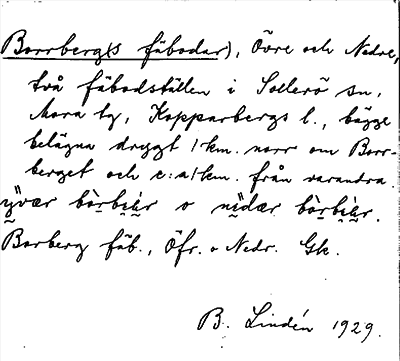 Borrberg(s fäbodar), Övre och Nedre,
två fäbodställen i Sollerö sn,
Mora tg, Kopparbergs l., bägge
belägna drygt 1 km. norr om Borr-
berget och c:a 1 km. från varandra.
ÿvær bòrbɛ̀r o nïdær bòrbɛ̀r.
Borberg fäb., Öfr. o Nedr. Gk.
B. Lindén 1929.